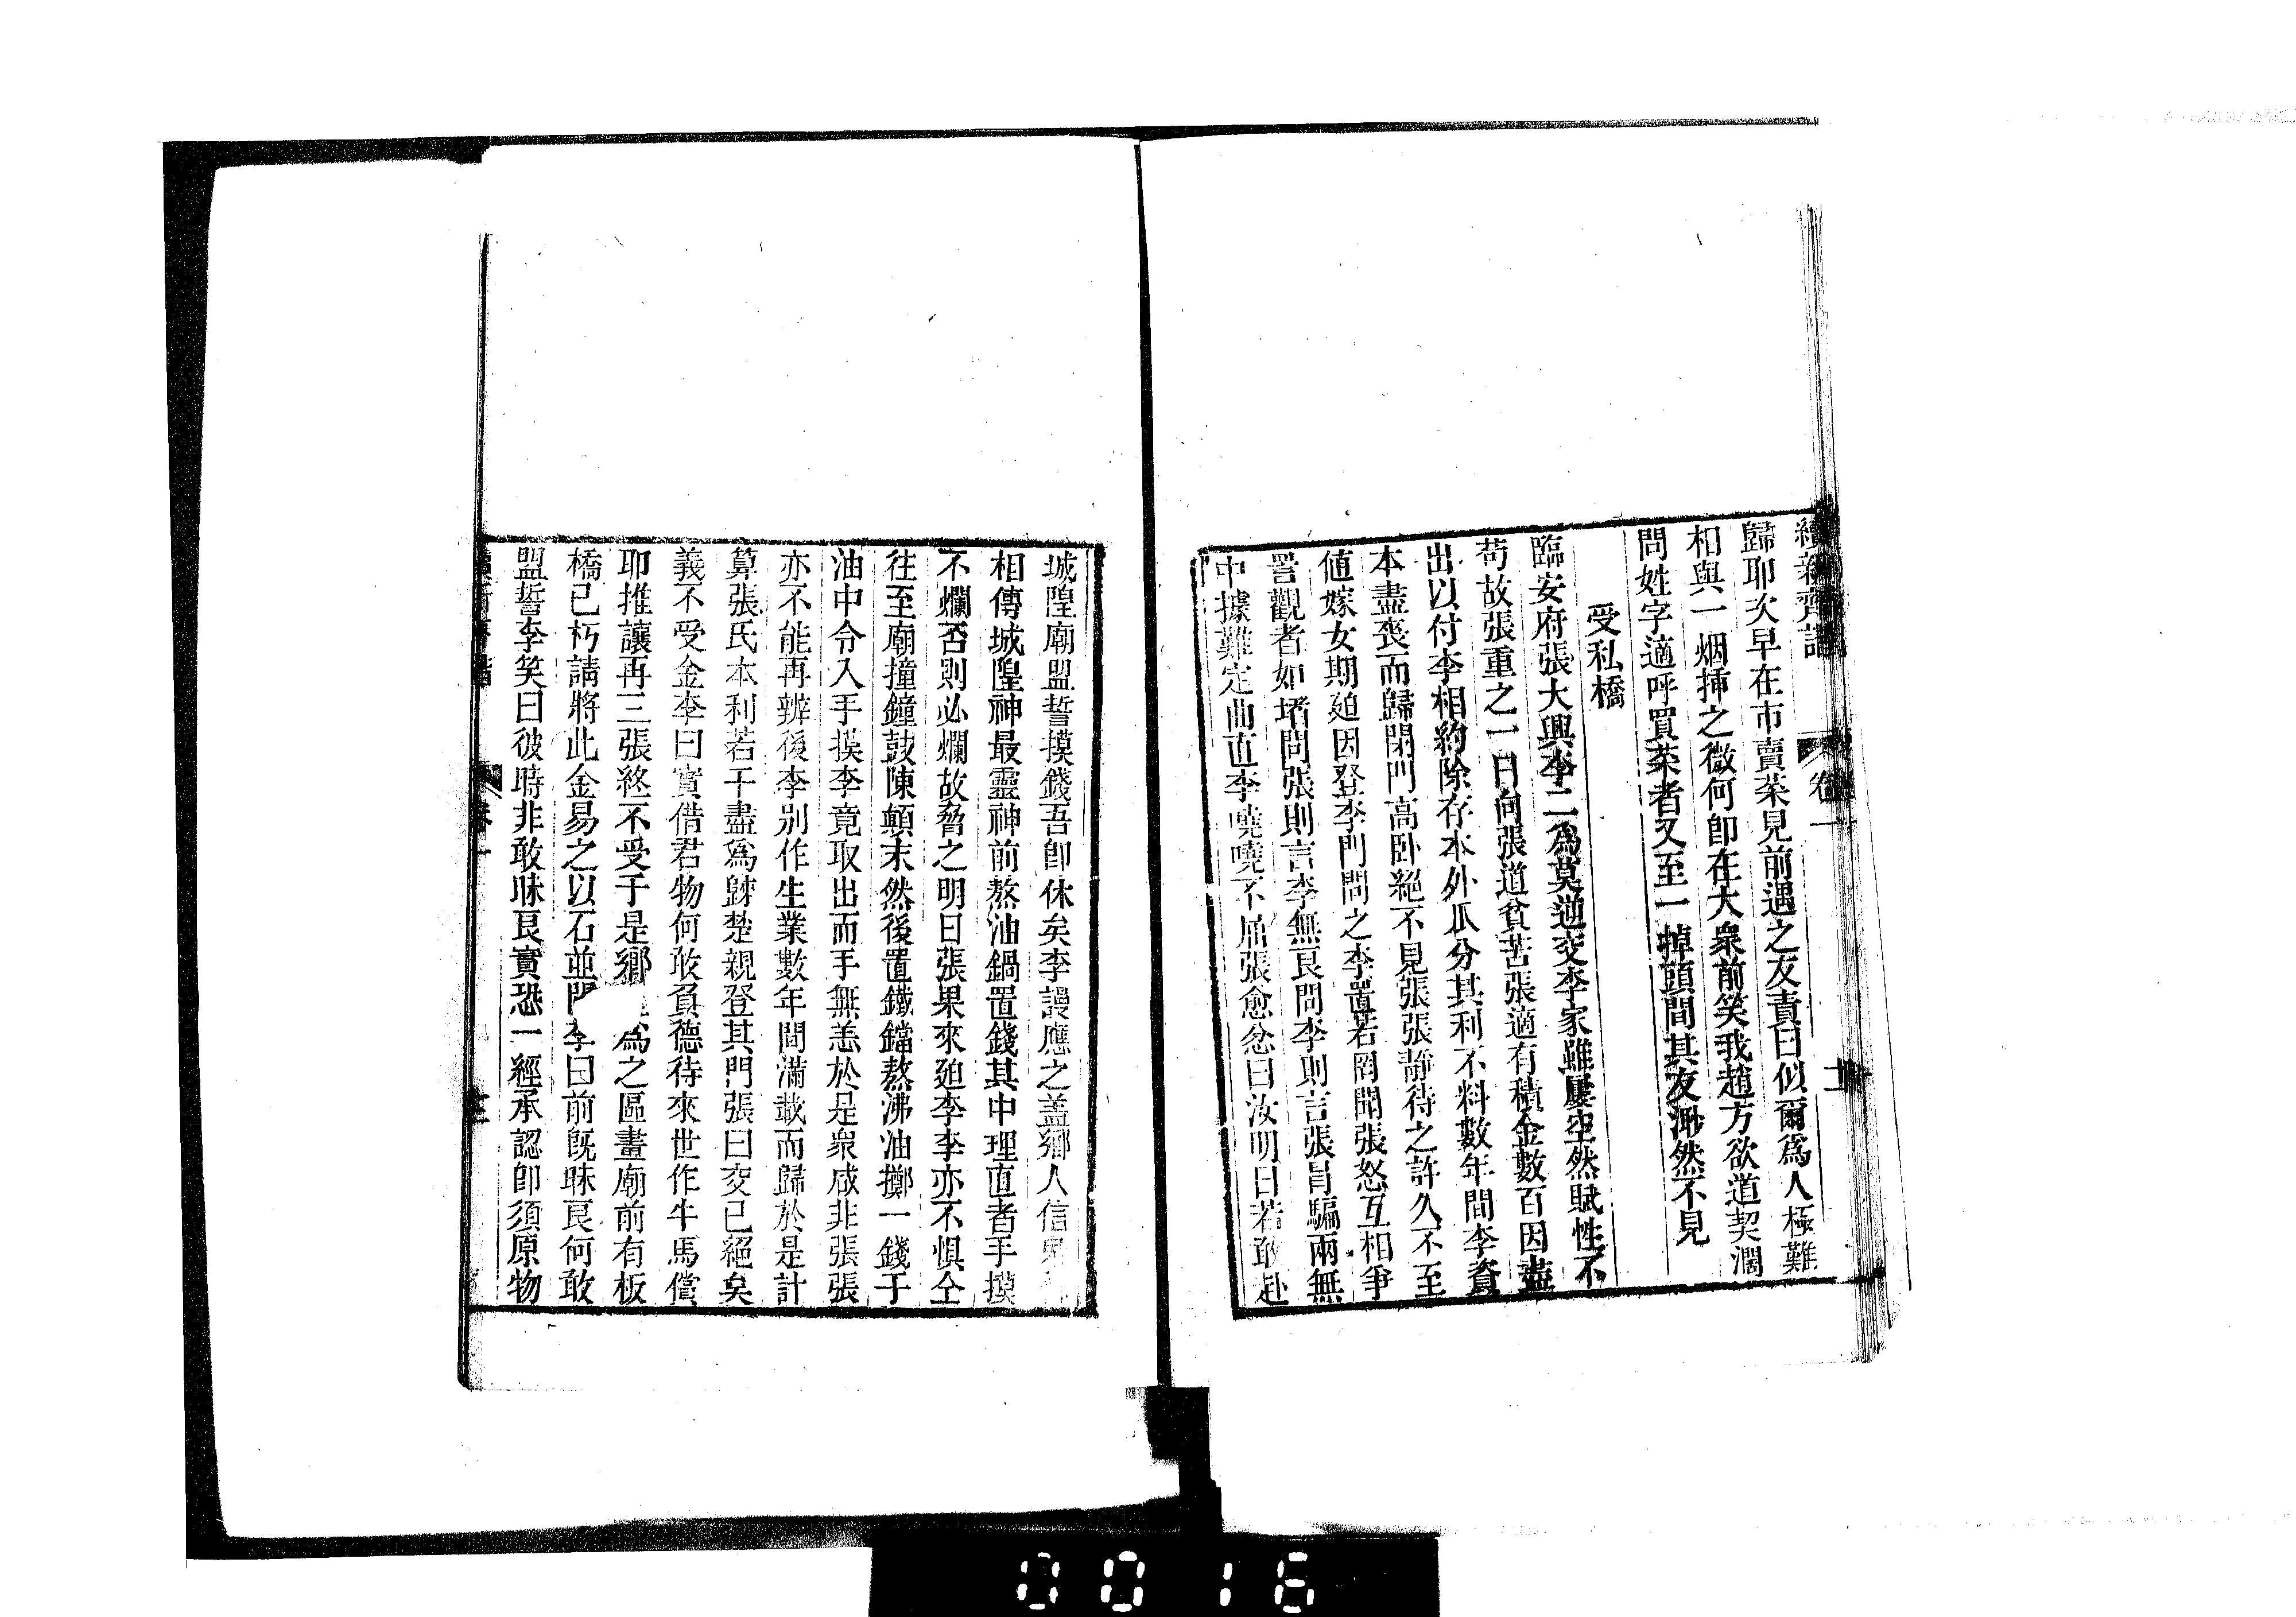 續新齊諧　卷一　十二
歸耶次早在市賣菜見前遇之友責曰似爾爲人極難
相與一烟揷之微何卽在大衆前笑我趙方欲道契濶
問姓字適呼買菜者又至一掉頭間其友渺然不見
受私橋
臨安府張大興李二爲莫逆交李家雖屢空然賦性不
苟故張重之一日向張道貧苦張適有積金數百因盡
出以付李相約除存本外瓜分其利不料數年間李資
本盡喪而歸閉門高卧絕不見張張靜待之許久不至
値嫁女期廹因登李門問之李置若罔聞張怒互相爭
詈觀者如堵問張則言李無良問李則言張肙騙兩無
中據難定曲直李嘵嘵不屈張愈忿曰汝明日若敢赴
城隍廟盟誓摸錢吾卽休矣李謾應之盖鄉人信
相傳城隍神最靈神前熬油鍋置錢其中理直者手摸
不爛否則必爛故脅之明日張果來廹李李亦不惧仝
往至廟撞鐘鼓陳顛末然後置鐵鐺熬沸油擲一錢于
油中令入手摸李竟取出而手無恙於是衆咸非張張
亦不能再辨後李别作生業數年間滿載而歸於是計
算張氏本利若干盡爲歸楚親登其門張曰交已絕矣
義不受金李曰實借君物何敢負德待來世作牛馬償
耶推讓再三張終不受于是鄉爲之區畫廟前有板
橋已朽請將此金易之以石並問李曰前旣昧良何敢
盟誓李笑曰彼時非敢昧良實恐一經承認卽須原物
卷一